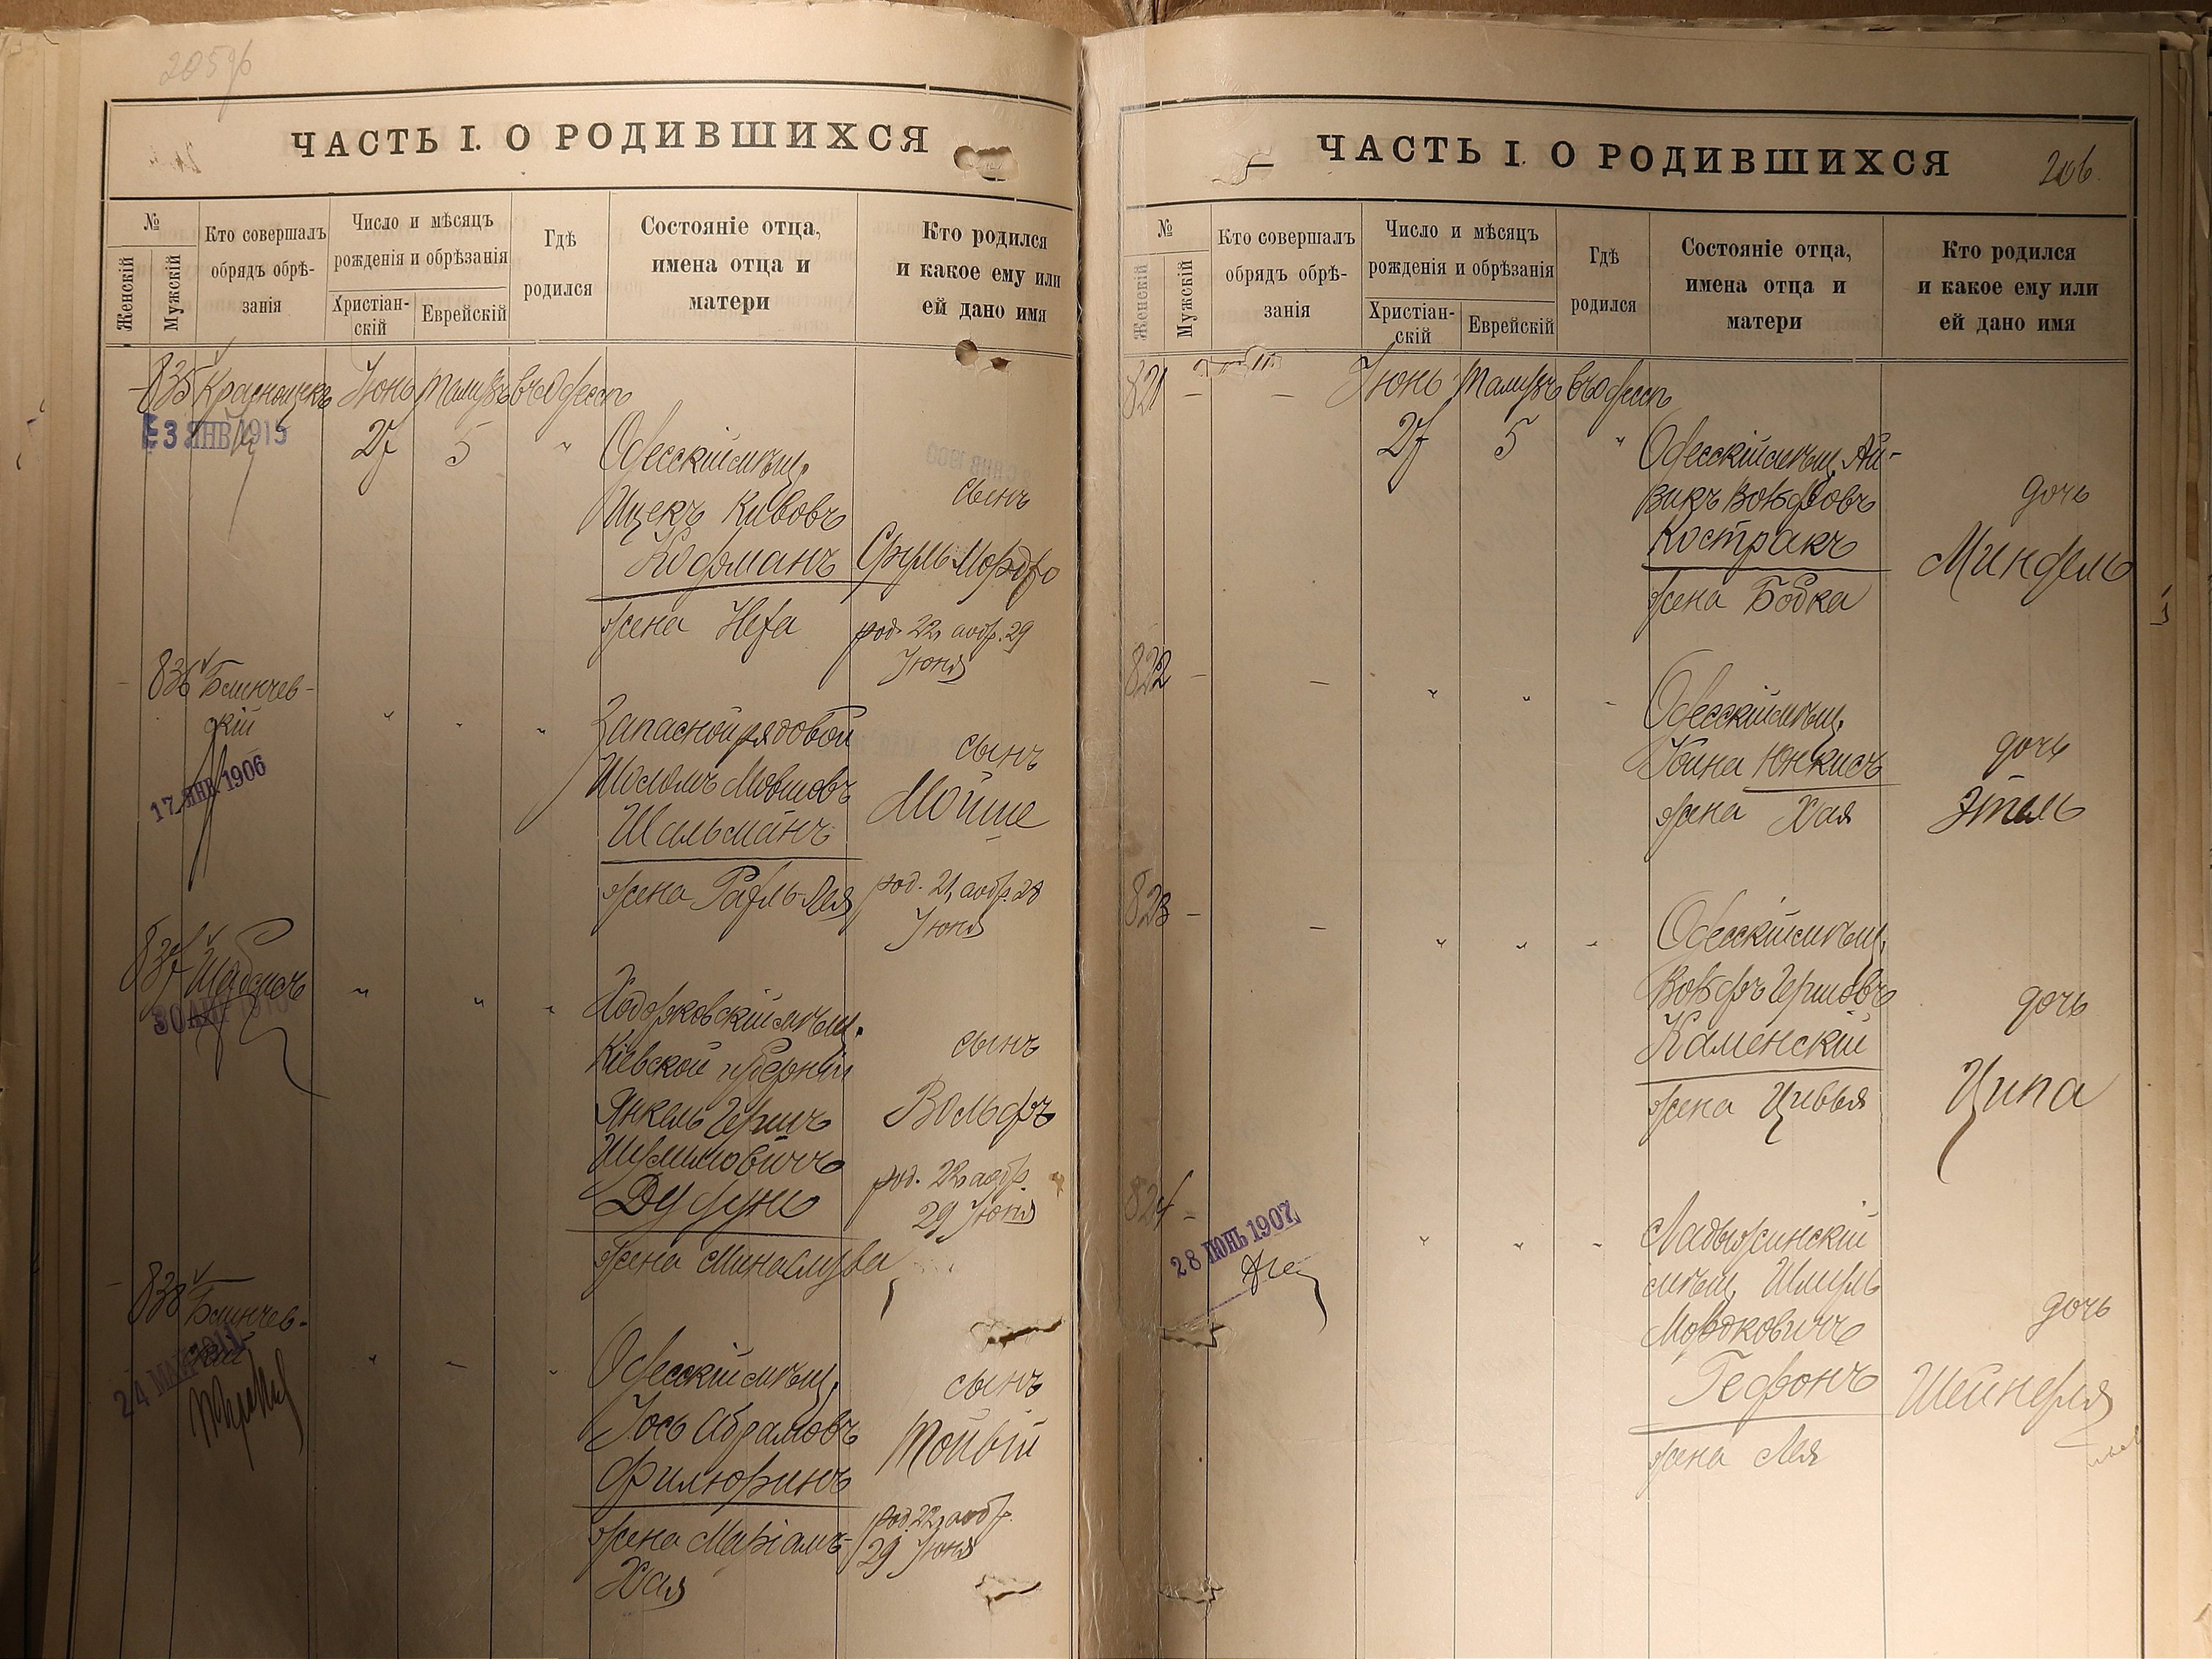 ЧАСТЬ I. О РОДИВШИХСЯ
№
Женскій
Мужскій
Кто совершалъ
обрядъ обрѣ-
занія
Число и мѣсяцъ
рожденія и обрѣзанія
Христіан-
скій
Еврейскій
Гдѣ
родился
Состояніе отца,
имена отца и
матери
Кто родился
и какое ему или
ей дано имя
835 Іюнь Тамузъ въ Одессѣ
ЯНВ 1915
27 5 "
Одесскій мѣщ.
Ицекъ Кивовъ
Кофманъ
жена Неха
сынъ
Сруль Мордко
род. 22, а обр. 29
Іюня
836 Блинчев-
скій
17 ЯНВ 1906
" " "
Запасной рядовой
Шоломъ Мовшовъ
Шальманъ
жена Рахль-Лея
сынъ
Мойше
род. 21, а обр. 28
Іюня
837 Шабсисъ
" " "
Ходорковскій мѣщ.
Кіевской губерніи
Янкель Гершъ
Шулимовичъ
жена
сынъ
Вольфъ
род. 22 а обр.
29 Іюня
838 Блинчев-
скій
" " "
Одесскій мѣщ.
Іось Абрамовъ
жена Маріамъ-
Хая
сынъ
Тойвій
род. 22, а обр.
29 Іюня
ЧАСТЬ I. О РОДИВШИХСЯ
206.
№
Женскій
Мужскій
Кто совершалъ
обрядъ обрѣ-
занія
Число и мѣсяцъ
рожденія и обрѣзанія
Христіан-
скій
Еврейскій
Гдѣ
родился
Состояніе отца,
имена отца и
матери
Кто родился
и какое ему или
ей дано имя
821 – – Іюнь Тамузъ въ Одессѣ
27 5 "
Одесскій мѣщ. Ай-
зикъ Вольфовъ
Костракъ
жена
дочь
Миндель
822 – – " " "
Одесскій мѣщ.
Юнкисъ
жена Хая
дочь
Этель
823 – – " " "
Одесскій мѣщ.
Вольфъ Гершовъ
Каменскій
жена Цивья
дочь
Ципа
824 –
28 ІЮНЬ 1907
" " "
Ладыжинскій
мѣщ. Шмуль
Мордковичъ
жена Лея
дочь